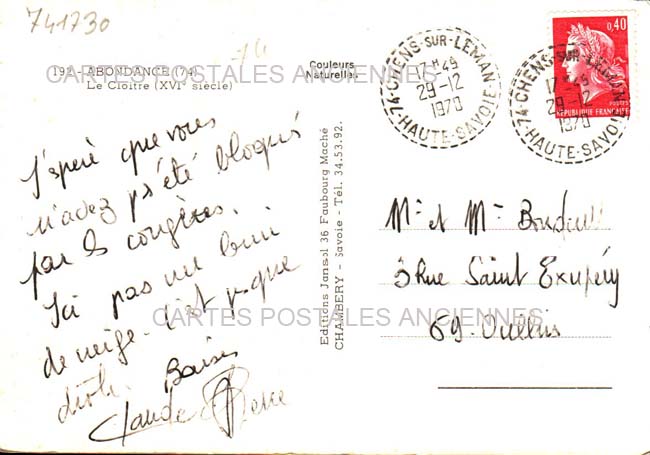 741730
74
192 - ABONDANCE (74)
Le Cloître (XVIe siècle)
Couleurs
Naturelles
CARTES POSTALES ANCIENNES
J'espère que vous
n'avez pas été bloqués
par les congères.
Ici pas un brin
de neige. C'est presque
drôle. Baisers
Claude Pierre
Editions Jansol 36 Faubourg Maché
CHAMBERY - Savoie - Tél. 34.53.92.
74 CHENS-SUR-LEMAN
17H45
29-12
1970
HAUTE-SAVOIE
74 CHENS-SUR-LEMAN
17H45
29-12
1970
HAUTE-SAVOIE
0,40
POSTES
REPUBLIQUE FRANÇAISE
Mr et Mme
3 Rue Saint Exupéry
69. Oullins
CARTES POSTALES ANCIENNES